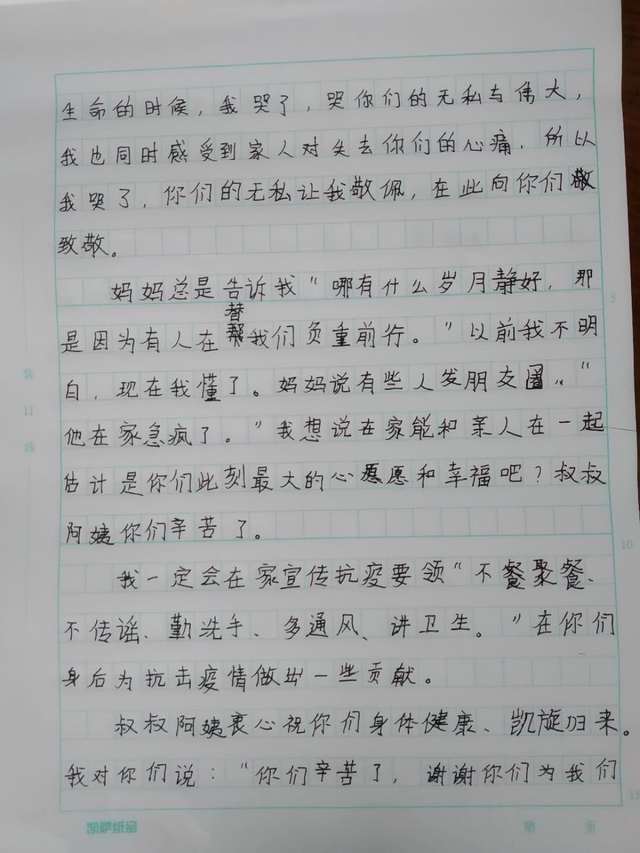 生命的时候，我哭了，哭你们的无私与伟大，
我也同时感受到家人对失去你们的心痛，所以
我哭了，你们的无私让我敬佩，在此向你们
致敬。
妈妈总是告诉我“哪有什么岁月静好，那
是因为有人在替我们负重前行。”以前我不明
白，现在我懂了。妈妈说有些人发朋友圈“
他在家急疯了。”我想说在家能和亲人在一起
估计是你们此刻最大的心愿和幸福吧？叔叔
阿姨你们辛苦了。
我一定会在家宣传抗疫要领“不餐聚餐、
不传谣、勤洗手、多通风、讲卫生。”在你们
身后为抗击疫情做出一些贡献。
叔叔阿姨衷心祝你们身体健康、凯旋归来。
我对你们说：“你们辛苦了，谢谢你们为我们